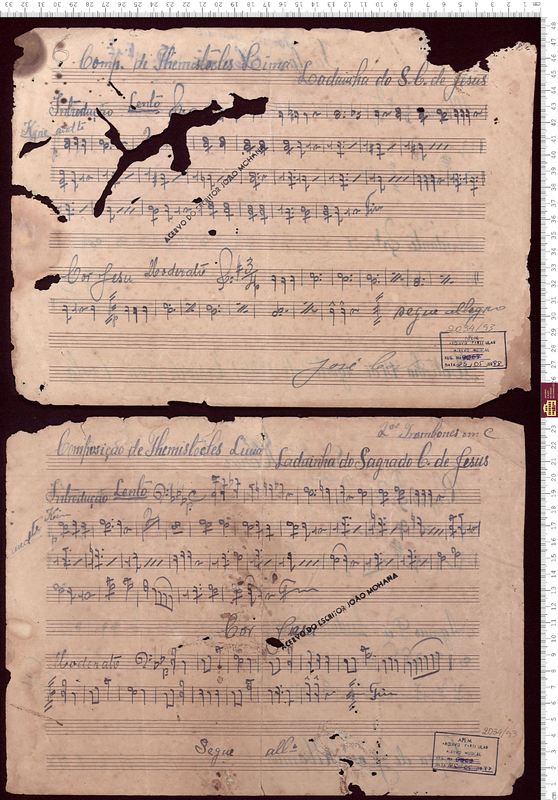 Comp. de Themistocles Lima
Ladainha do S. C. de Jesus
Introdução Lento
Kyrie
Fim
ACERVO DO ESCRITOR JOÃO MOHANA
Cor Jesu Moderato
segue allegro
2034/93
APEM
ARQUIVO PARTICULAR
ACERVO MUSICAL
José
2os Trombones em C
Composição de Themistocles Lima
Ladainha do Sagrado C. de Jesus
Introdução Lento
Fim
ACERVO DO ESCRITOR JOÃO MOHANA
Cor
Moderato
Fim
2034/93
Segue allo
APEM
ARQUIVO PARTICULAR
ACERVO MUSICAL